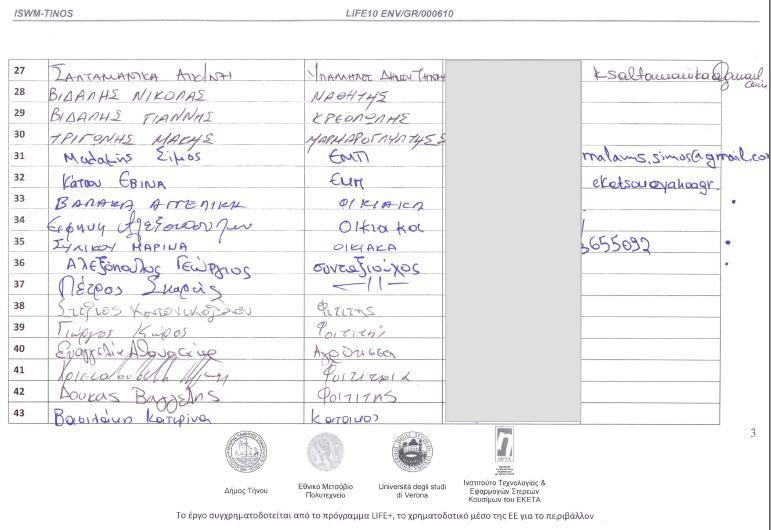 ISWM-TINOS LIFE10 ENV/GR/000610
27 ΣΑΛΤΑΜΑΝΙΚΑ ΥΠΑΛΛΗΛΟΣ ΔΗΜΟΥ ΤΗΝΟΥ
28 ΒΙΔΑΛΗΣ ΝΙΚΟΛΑΣ ΜΑΘΗΤΗΣ
29 ΒΙΔΑΛΗΣ ΓΙΑΝΝΗΣ ΚΡΕΟΠΩΛΗΣ
30 ΤΡΙΓΩΝΗΣ ΜΑΚΗΣ ΜΑΡΜΑΡΟΓΛΥΠΤΗΣ
31 Μαλαμης Σίμος ΕΜΠ malamis.simos@gmail.co
32 Κάτσου ΕΒΙΝΑ ΕΜΠ
33 ΒΑΛΑΚΑ ΑΓΓΕΛΙΚΗ ΟΙΚΙΑΚΑ
34 Οικιακα
35 ΜΑΡΙΝΑ ΟΙΚΙΑΚΑ 3655092
36 Αλεξόπουλος Γεώργιος συνταξιούχος
37 Πέτρος — 11 —
38 Φοιτητης
39 Γιώργος Φοιτητής
40 Ευαγγελία Αγρότισσα
41 Φοιτήτρια
42 Δουκας Βαγγέλης Φοιτιτης
43 Βασιλάκη Κατερίνα Κάτοικος
3
Δήμος Τήνου Εθνικό Μετσόβιο Πολυτεχνείο Università degli studi di Verona Ινστιτούτο Τεχνολογίας & Εφαρμογών Στερεών Καυσίμων του ΕΚΕΤΑ
Το έργο συγχρηματοδοτείται από το πρόγραμμα LIFE+, το χρηματοδοτικό μέσο της ΕΕ για το περιβάλλον